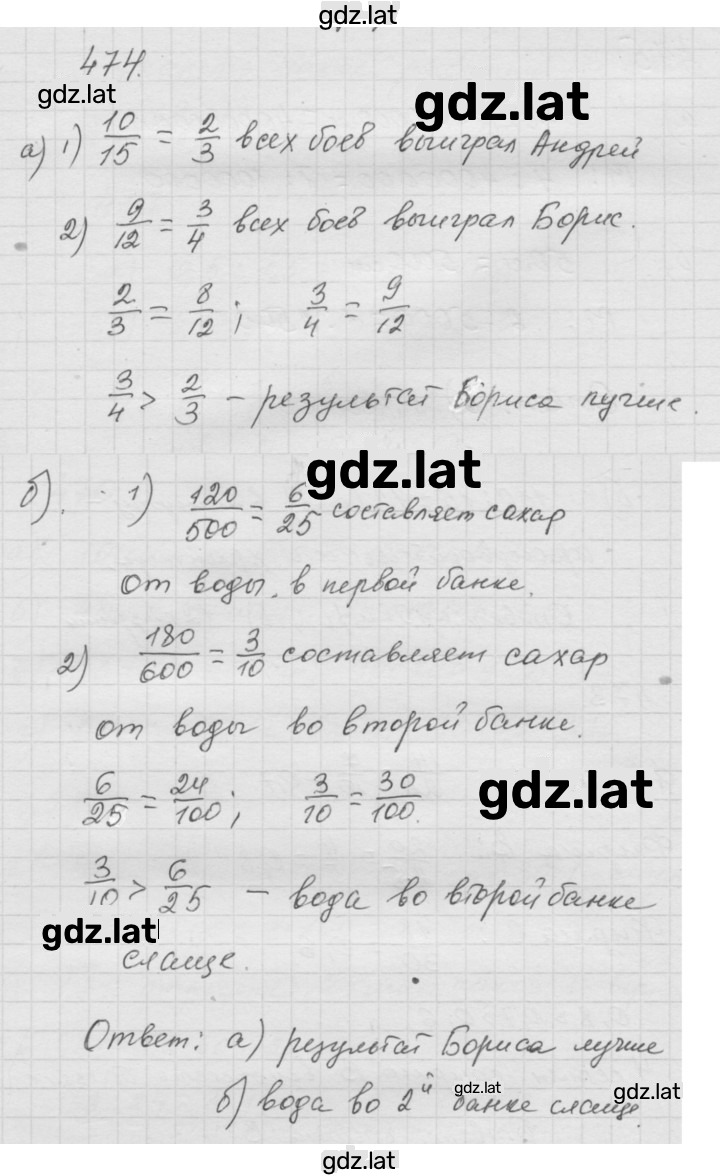 gdz.lat
474.
gdz.lat
gdz.lat
а) 1) 10/15 = 2/3 всех боёв выиграл Андрей
2) 9/12 = 3/4 всех боёв выиграл Борис.
2/3 = 8/12; 3/4 = 9/12
3/4 > 2/3 – результат Бориса лучше.
gdz.lat
б). 1) 120/500 = 6/25 составляет сахар
от воды, в первой банке.
2) 180/600 = 3/10 составляет сахар
от воды во второй банке.
6/25 = 24/100; 3/10 = 30/100.
gdz.lat
3/10 > 6/25 – вода во второй банке
gdz.lat
слаще.
Ответ: а) результат Бориса лучше
б) вода во 2й банке слаще.
gdz.lat
gdz.lat
gdz.lat